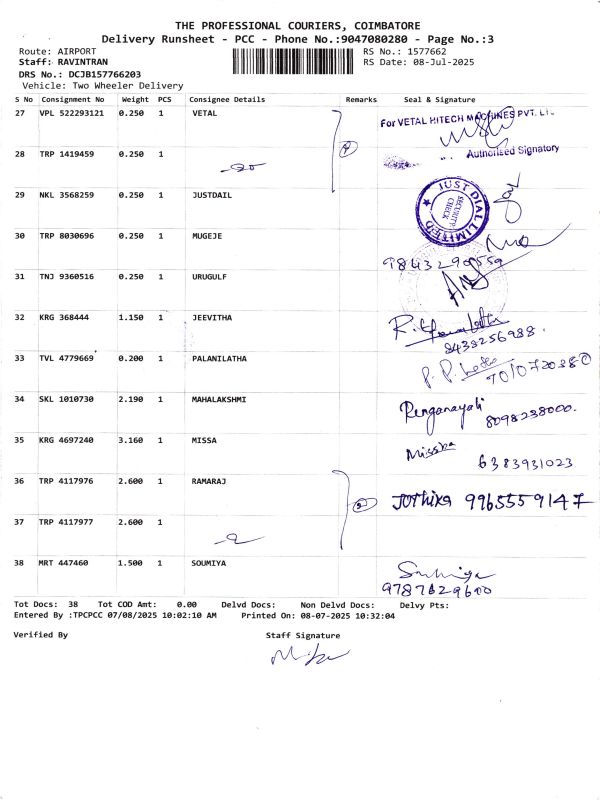 THE PROFESSIONAL COURIERS, COIMBATORE
Delivery Runsheet - PCC - Phone No.:9047080280 - Page No.:3
Route: AIRPORT RS No.: 1577662
Staff: RAVINTRAN RS Date: 08-Jul-2025
DRS No.: DCJB157766203
Vehicle: Two Wheeler Delivery
S No Consignment No Weight PCS Consignee Details Remarks Seal & Signature
27 VPL 522293121 0.250 1 VETAL For VETAL HITECH MACHINES PVT. LTD.
Authorised Signatory
28 TRP 1419459 0.250 1
29 NKL 3568259 0.250 1 JUSTDAIL JUST DIAL LIMITED SECURITY CHECK
30 TRP 8030696 0.250 1 MUGEJE
31 TNJ 9360516 0.250 1 URUGULF
32 KRG 368444 1.150 1 JEEVITHA
9438256988.
33 TVL 4779669 0.200 1 PALANILATHA
34 SKL 1010730 2.190 1 MAHALAKSHMI Renganayaki 8098238000.
35 KRG 4697240 3.160 1 MISSA Missba 6383931023
36 TRP 4117976 2.600 1 RAMARAJ Jothika 9965559147
37 TRP 4117977 2.600 1
38 MRT 447460 1.500 1 SOUMIYA
9787629600
Tot Docs: 38 Tot COD Amt: 0.00 Delvd Docs: Non Delvd Docs: Delvy Pts:
Entered By :TPCPCC 07/08/2025 10:02:10 AM Printed On: 08-07-2025 10:32:04
Verified By Staff Signature